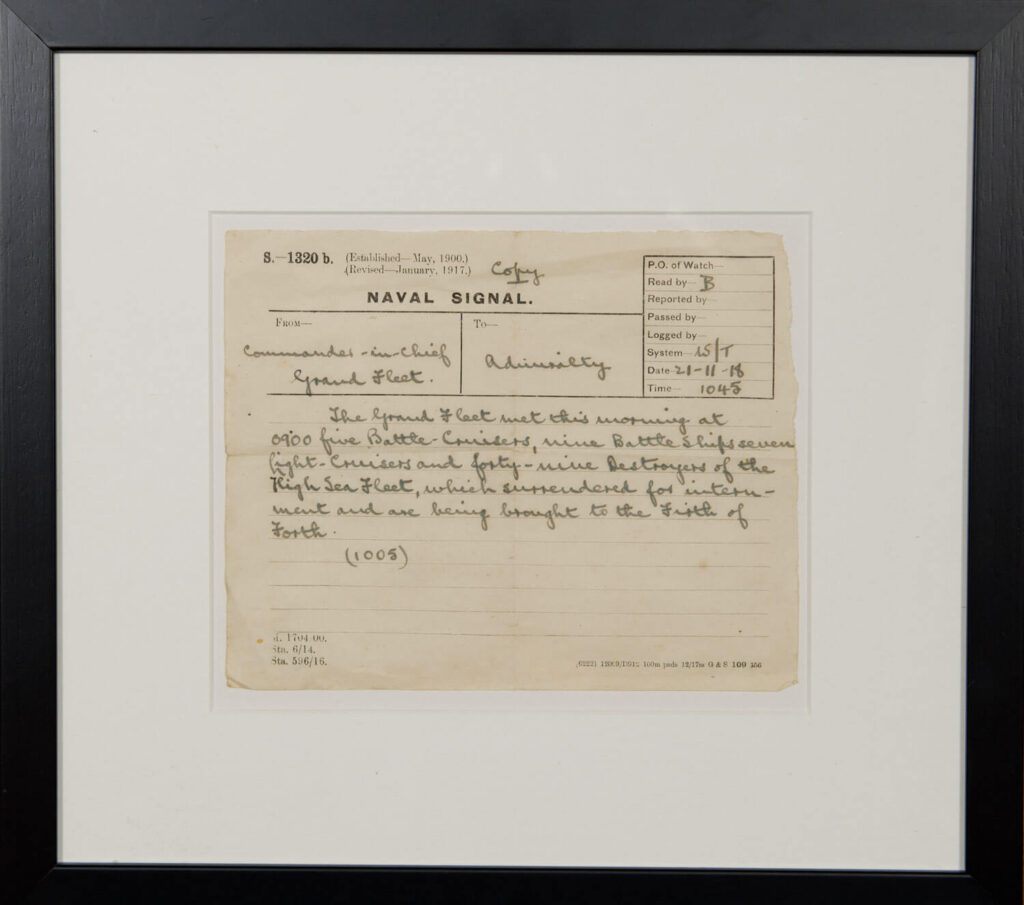 S.—1320 b. (Established—May, 1900.)
(Revised—January, 1917.)
Copy
NAVAL SIGNAL.
P.O. of Watch—
Read by— B
Reported by—
Passed by—
Logged by—
System— W/T
Date— 21-11-18
Time— 1045
FROM—
Commander-in-Chief
Grand Fleet.
To—
Admiralty
The Grand Fleet met this morning at
0900 five Battle-Cruisers, nine Battle Ships seven
light-Cruisers and forty-nine Destroyers of the
High Sea Fleet, which surrendered for intern-
ment and are being brought to the Firth of
Forth.
(1005)
1704/00.
Sta. 6/14.
Sta. 596/16.
100m pads 12/17m G & S 109